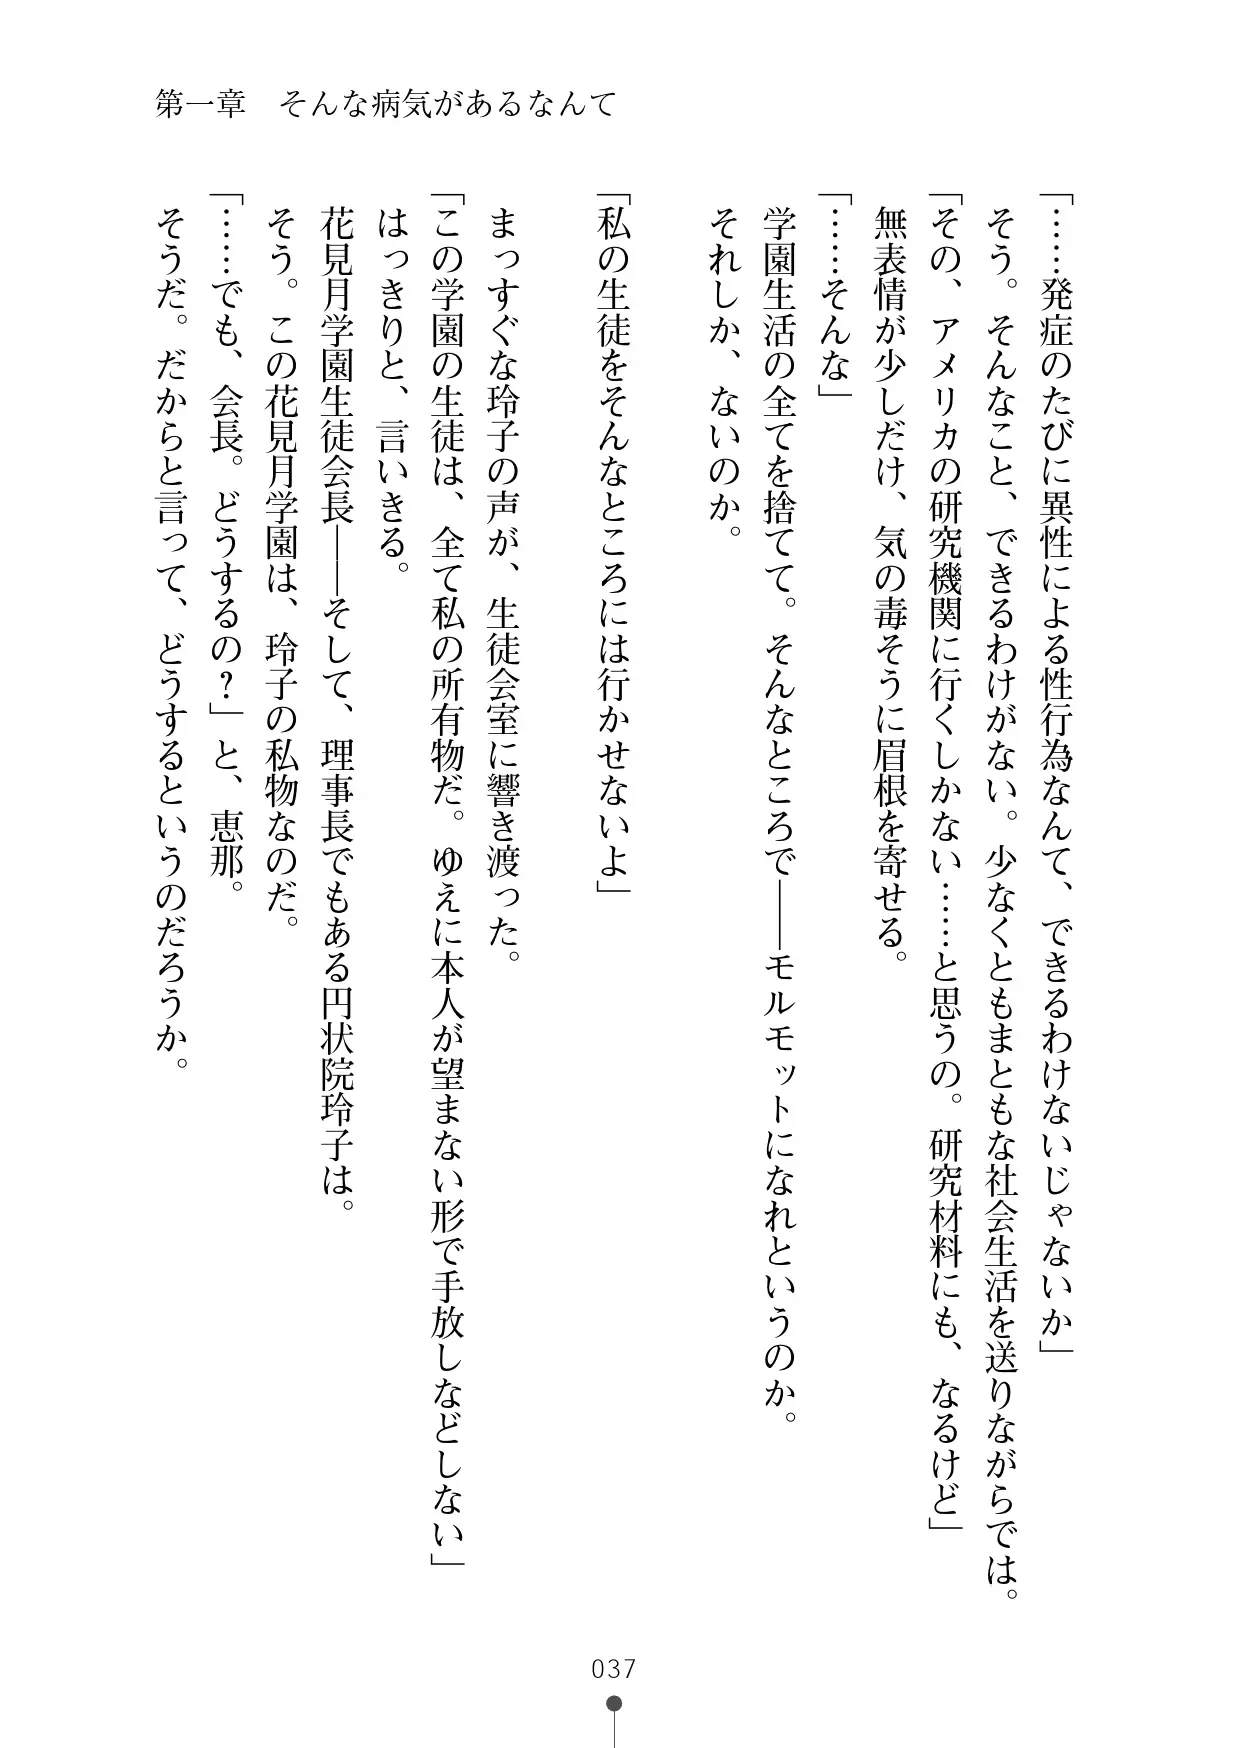 第一章　そんな病気があるなんて
「……発症のたびに異性による性行為なんて、できるわけないじゃないか」
そう。そんなこと、できるわけがない。少なくともまともな社会生活を送りながらでは。
「その、アメリカの研究機関に行くしかない……と思うの。研究材料にも、なるけど」
無表情が少しだけ、気の毒そうに眉根を寄せる。
「……そんな」
学園生活の全てを捨てて。そんなところで――モルモットになれというのか。
それしか、ないのか。
「私の生徒をそんなところには行かせないよ」
まっすぐな玲子の声が、生徒会室に響き渡った。
「この学園の生徒は、全て私の所有物だ。ゆえに本人が望まない形で手放しなどしない」
はっきりと、言いきる。
花見月学園生徒会長――そして、理事長でもある円状院玲子は。
そう。この花見月学園は、玲子の私物なのだ。
「……でも、会長。どうするの？」と、恵那。
そうだ。だからと言って、どうするというのだろうか。
037